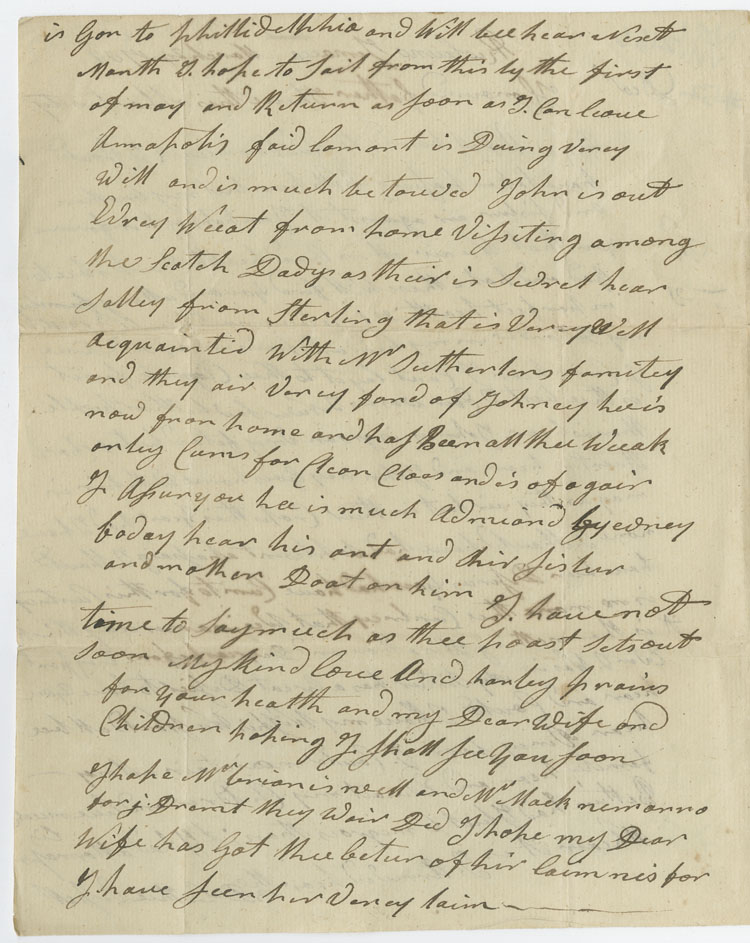 is Gon to phillidelphia and Will bee hear Next
Month I hope to Sail from this by the first
of may and Return as soon as I Can leave
Annapolis said lamont is Duing Verey
Will and is much be louved John is out
Evrey Weeat from home Vissiting among
the Scotch Ladys as their is Sevrel hear
Salley from Sterling that is Verey Well
acquaintid With Mr Sutherlens familey
and they air Verey fond of Johney hee is
now from home and has Been all thee Weeak
onley Cums for Clean Cloas and is of agair
I Assur you hee is much Admiard by evrey
boday hear his ant and hir sistur
and mother Doat on him I have not
time to Say much as thee poast Setsout
soon My Kind love And harley prains
for your health and my Dear Wife and
Children hoping I shall see you soon
I hope Mr brian is well and Mrs Mack nemarro
for j Dremt they Wair Ded I hope my Dear
Wife has Got thee betur of hir laimnis for
I have seen her Verey laim